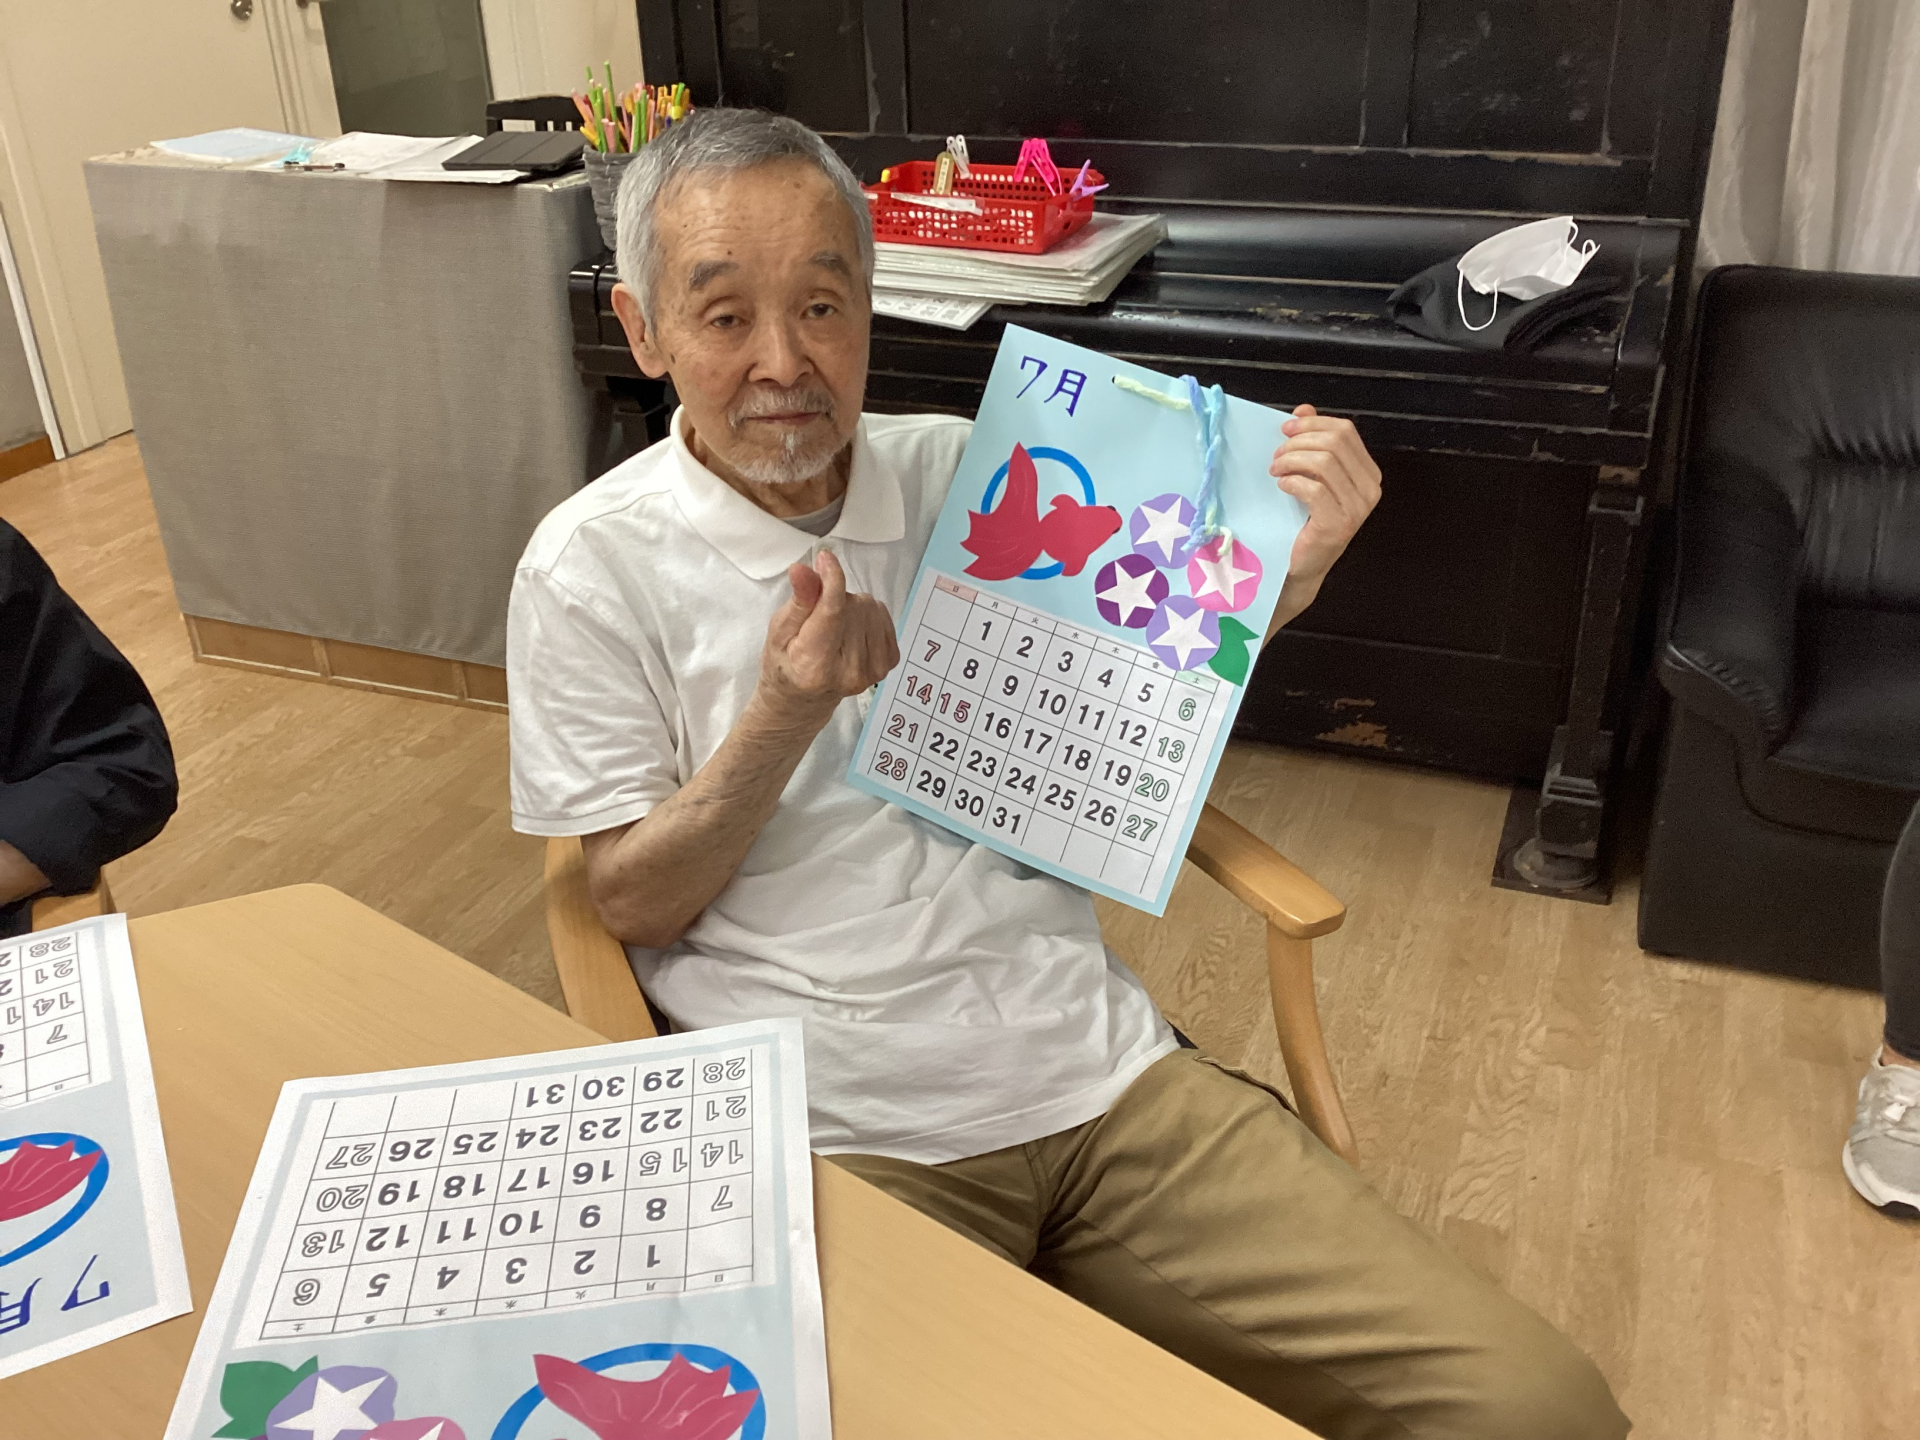 7月
日 月 火 水 木 金 土
1 2 3 4 5 6
7 8 9 10 11 12 13
14 15 16 17 18 19 20
21 22 23 24 25 26 27
28 29 30 31
日 月 火 水 木 金 土
1 2 3 4 5 6
7 8 9 10 11 12 13
14 15 16 17 18 19 20
21 22 23 24 25 26 27
28 29 30 31
7月
日
7
14 1
21 2
28 2